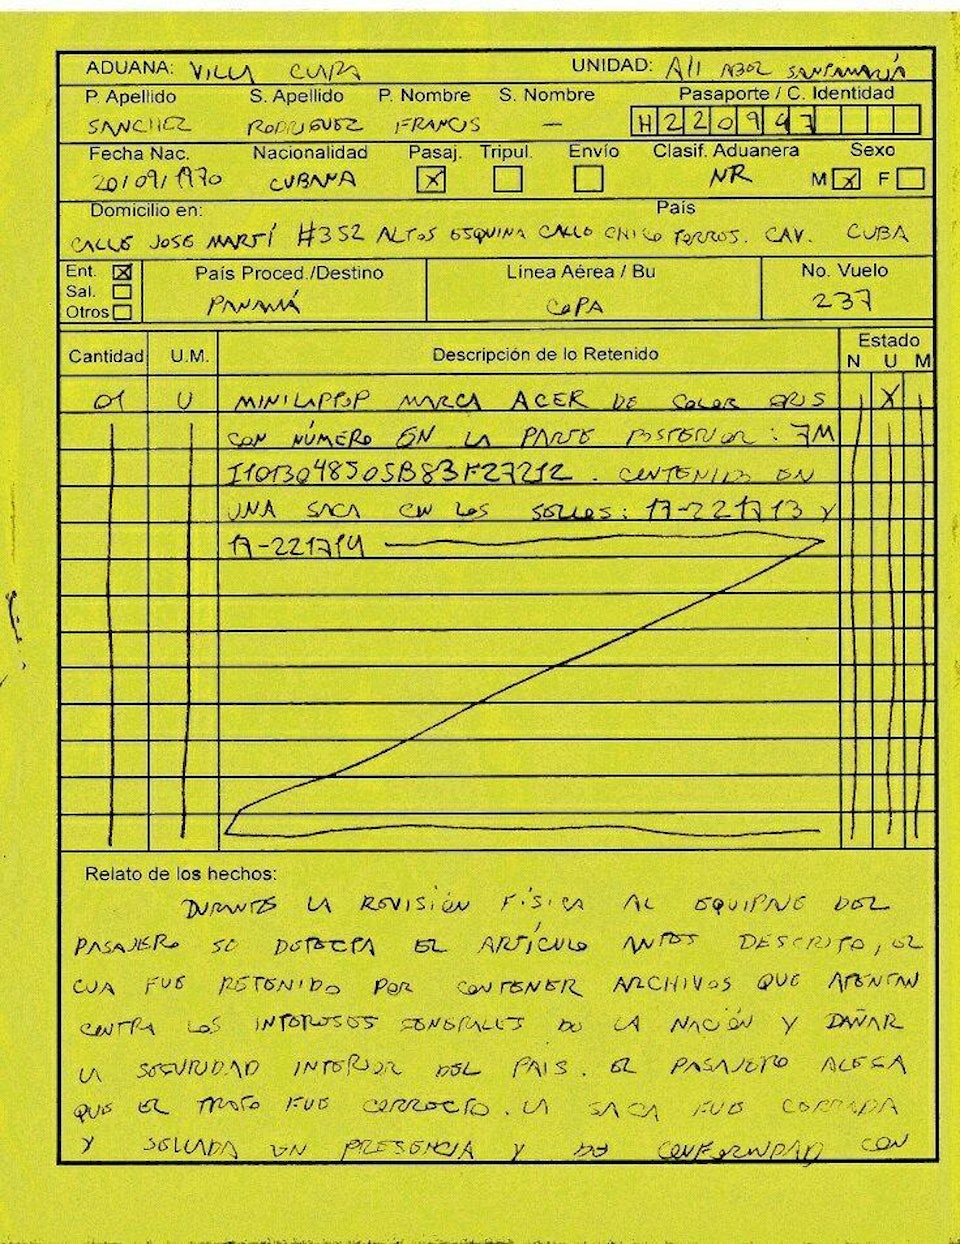 ADUANA: VILLA CLARA UNIDAD: A/I ABEL SANTAMARÍA
P. Apellido S. Apellido P. Nombre S. Nombre Pasaporte / C. Identidad
SANCHEZ RODRIGUEZ FRANCIS — H220947
Fecha Nac. Nacionalidad Pasaj. Tripul. Envío Clasif. Aduanera Sexo
20/09/1970 CUBANA X NR M X F
Domicilio en: País
CALLE JOSE MARTÍ #352 ALTOS ESQUINA CALLE CHICO TORRES. CAV. CUBA
Ent. X País Proced./Destino Línea Aérea / Bu No. Vuelo
Sal. PANAMÁ COPA 237
Otros
Cantidad U.M. Descripción de lo Retenido Estado
N U M
01 U MINILAPTOP MARCA ACER DE COLOR GRIS X
CON NÚMERO EN LA PARTE POSTERIOR: 7M
I1013048505B83F27212. CONTENIDO EN
UNA SACA CON LOS SELLOS: 17-221713 Y
17-221714
Relato de los hechos:
DURANTE LA REVISIÓN FÍSICA AL EQUIPAJE DEL
PASAJERO SE DETECTA EL ARTÍCULO ANTES DESCRITO, EL
CUA FUE RETENIDO POR CONTENER ARCHIVOS QUE ATENTAN
CONTRA LOS INTERESES GENERALES DE LA NACIÓN Y DAÑAR
LA SEGURIDAD INTERIOR DEL PAIS. EL PASAJERO ALEGA
QUE EL TRATO FUE CORRECTO. LA SACA FUE CERRADA
Y SELLADA EN PRESENCIA Y DE CONFORMIDAD CON